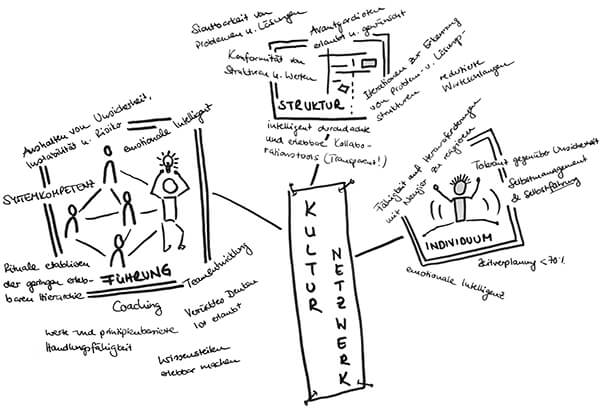 Sichtbarkeit von
Problemen u. Lösungen
Avantgardisten
erlaubt u. gewünscht
Konformität von
Strukturen u. Werten
STRUKTUR
Iterationen zur Erkennung
von Problem- u. Lösungs-
strukturen
reduzierte
intelligent durchdachte
und erlebbare Kollabo-
rationstools (Transparent!)
Aushalten von Unsicherheit,
Instabilität u. Risiko
emotionale Intelligent
SYSTEMKOMPETENZ
Rituale etablieren
der geringen erleb-
baren Hierarchie
FÜHRUNG
Teamentwicklung
Coaching
Verrücktes Denken
ist erlaubt
werte- und prinzipienbasierte
Handlungsfähigkeit
Wissensteilen
erlebbar machen
KULTUR
NETZWERK
Fähigkeit auf Herausforderungen
mit Neugier zu reagieren
Tolerant gegenüber Unsicherheit
Selbstmanagement
& Selbstführung
INDIVIDUUM
Zeitverplanung <70%
emotionale Intelligenz